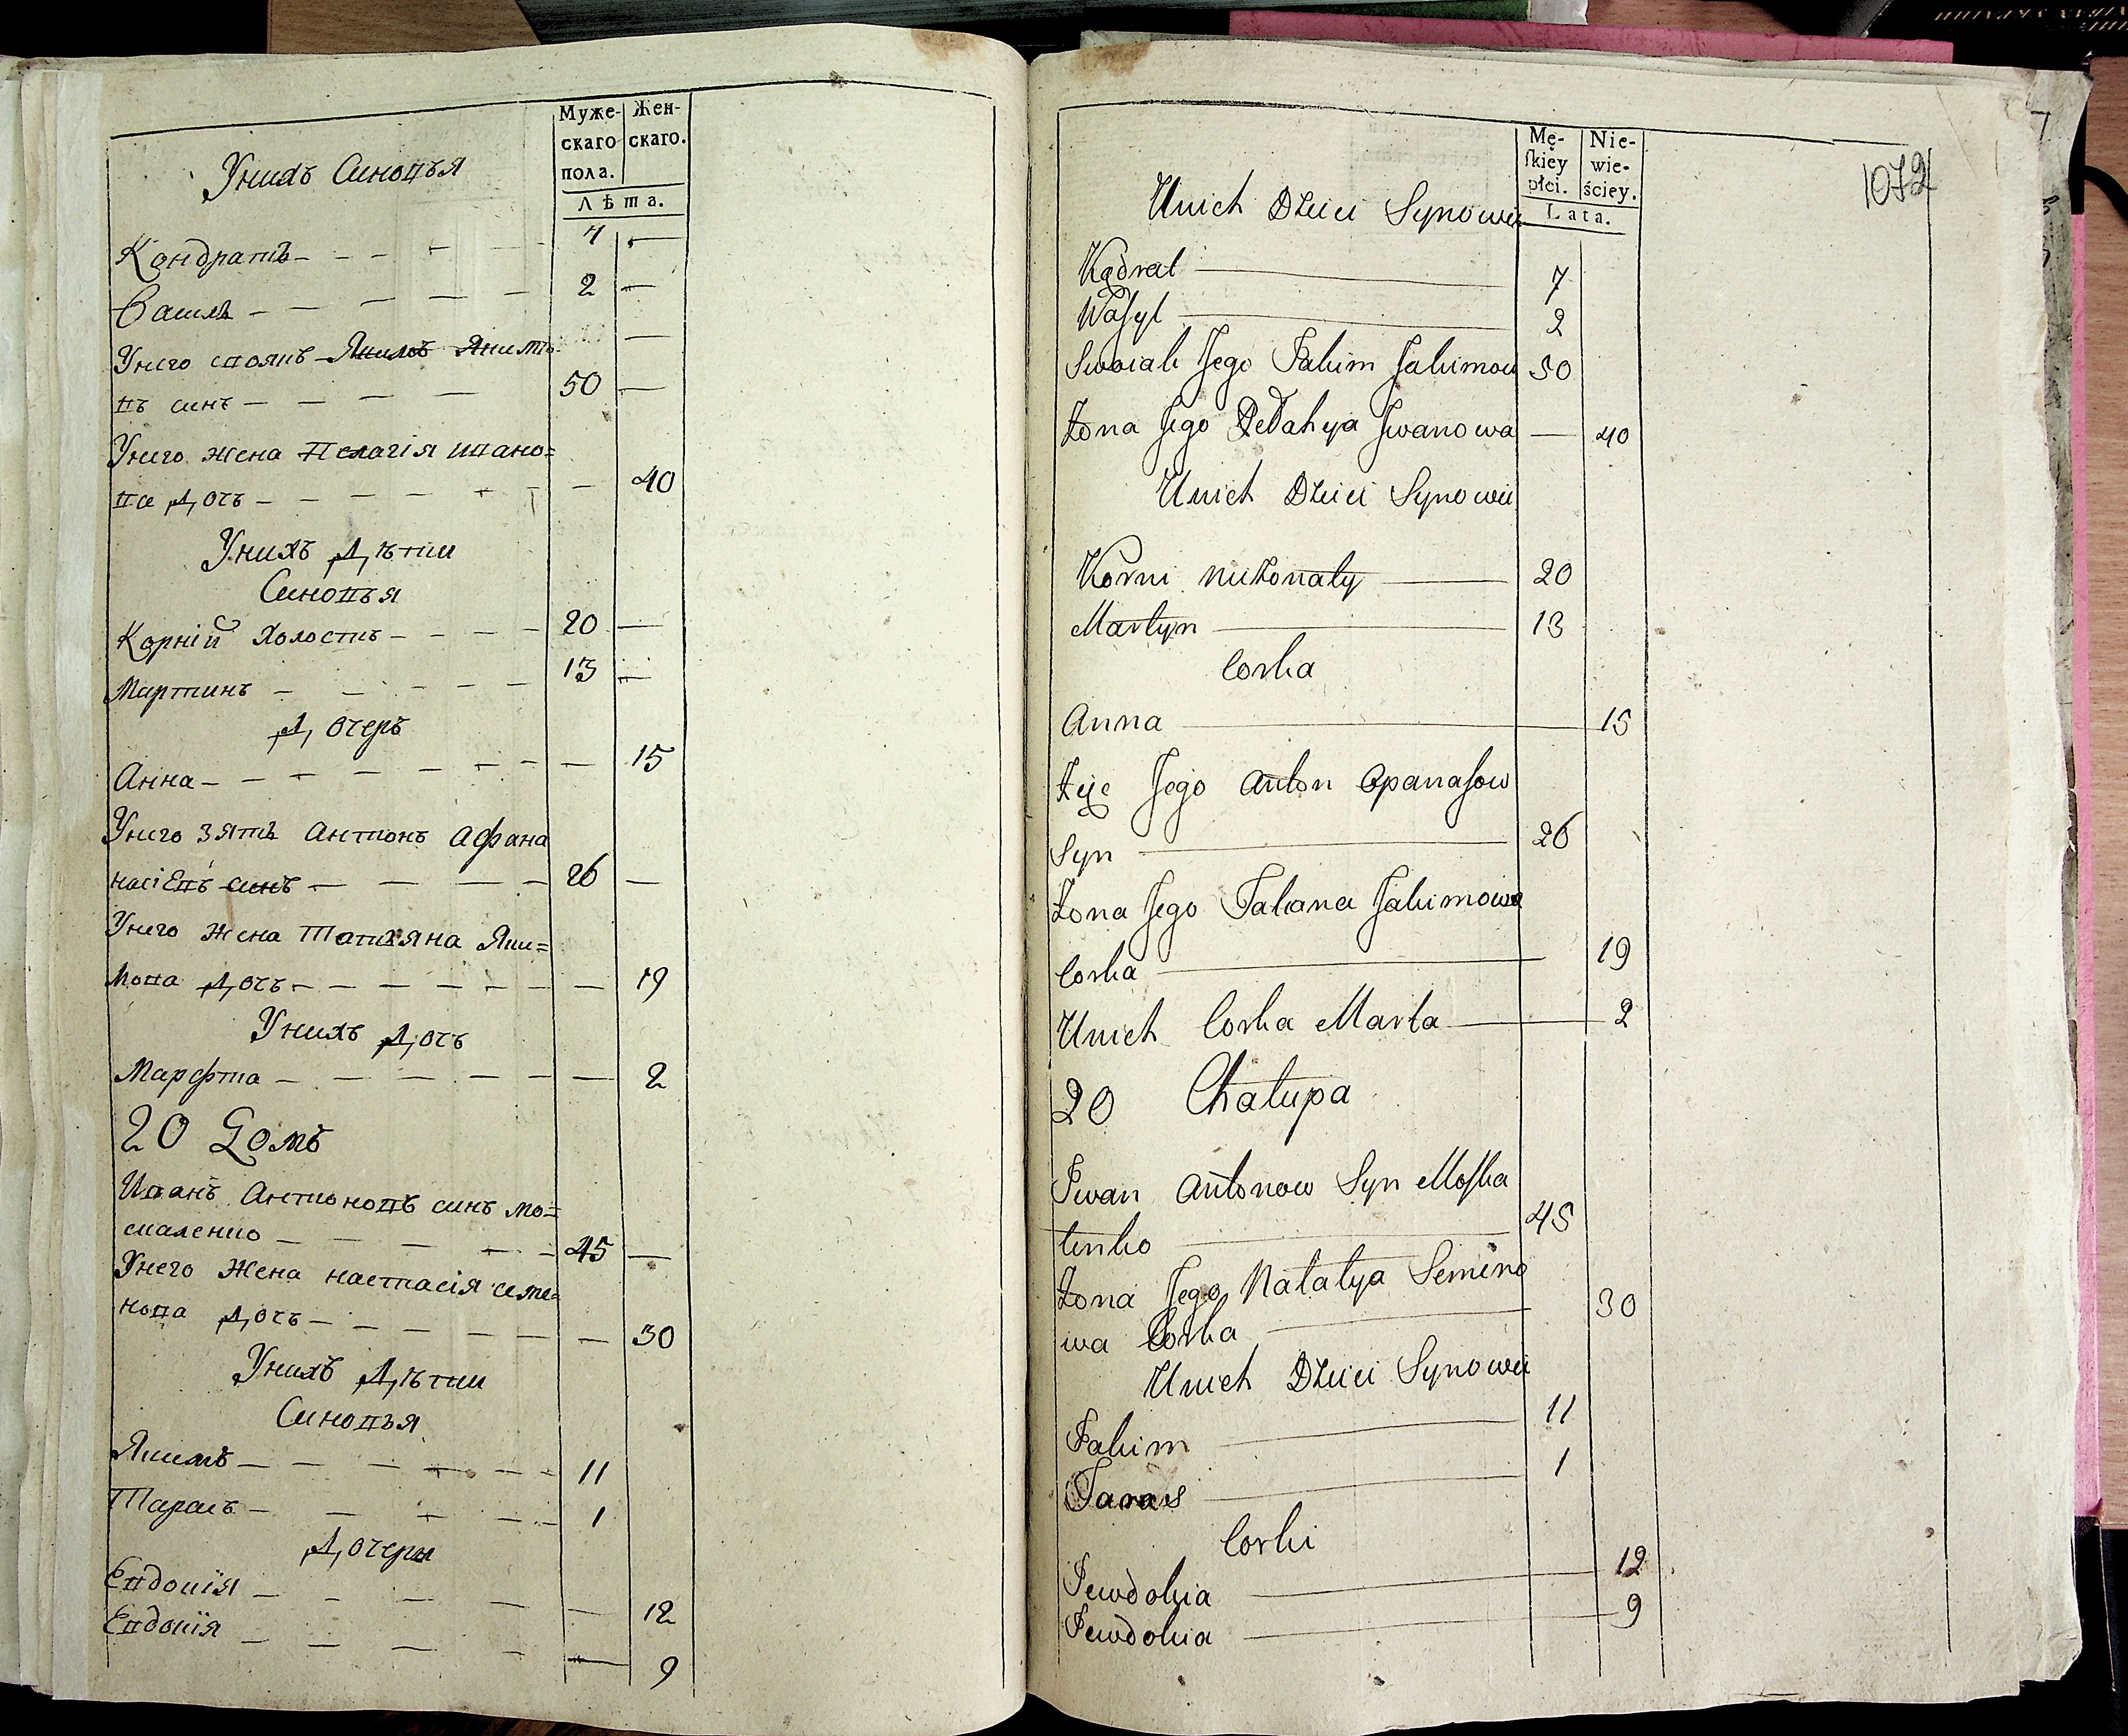 Муже-
скаго
пола.
Жен-
скаго.
Лѣта.
Унихъ Синовья
Кондратъ 7
Василь 2
Унего своякъ Якимъ Якимо
въ синъ 50
Унего жена Пелагія ивано=
ва дочъ 40
Унихъ дѣти
Синовья
Корній Холостъ 20
Мартинъ 13
Дочеръ
Анна 15
Унего зять Антонъ Афана
насіевъ синъ 26
Унего жена Татьяна Яки=
мова дочъ 19
Унихъ дочъ
Марфта 2
20 Домъ
Иванъ Антоновъ синъ мо=
скаленко 45
Унего Жена настасія семе=
нова дочъ 30
Унихъ дѣти
Синовья
Якимъ 11
Тарасъ 1
Дочери
Евдокія 12
Евдокія 9
1072
Mę-
ſkiey
płci.
Nie-
wie-
ściey.
Lata.
Unich Dzieci Synowie
Kądrat 7
Waſyl 2
Swoiak Jego Jakim Jakimow 50
Żona Jego Pelahya Jwanowa 40
Unich Dzieci Synowie
Korni nieżonaty 20
Martyn 13
Corka
Anna 15
Zięc Jego Anton Opanaſow
Syn 26
Żona Jego Tatiana Jakimowa
Corka 19
Unich Corka Marta 2
20 Chałupa
Jwan Antonow Syn Moſka
lenko 45
Żona Jego Natalya Semeno
wa Corka 30
Unich Dzieci Synowie
Jakim 11
Taras 1
Corki
Jewdokia 12
Jewdokia 9